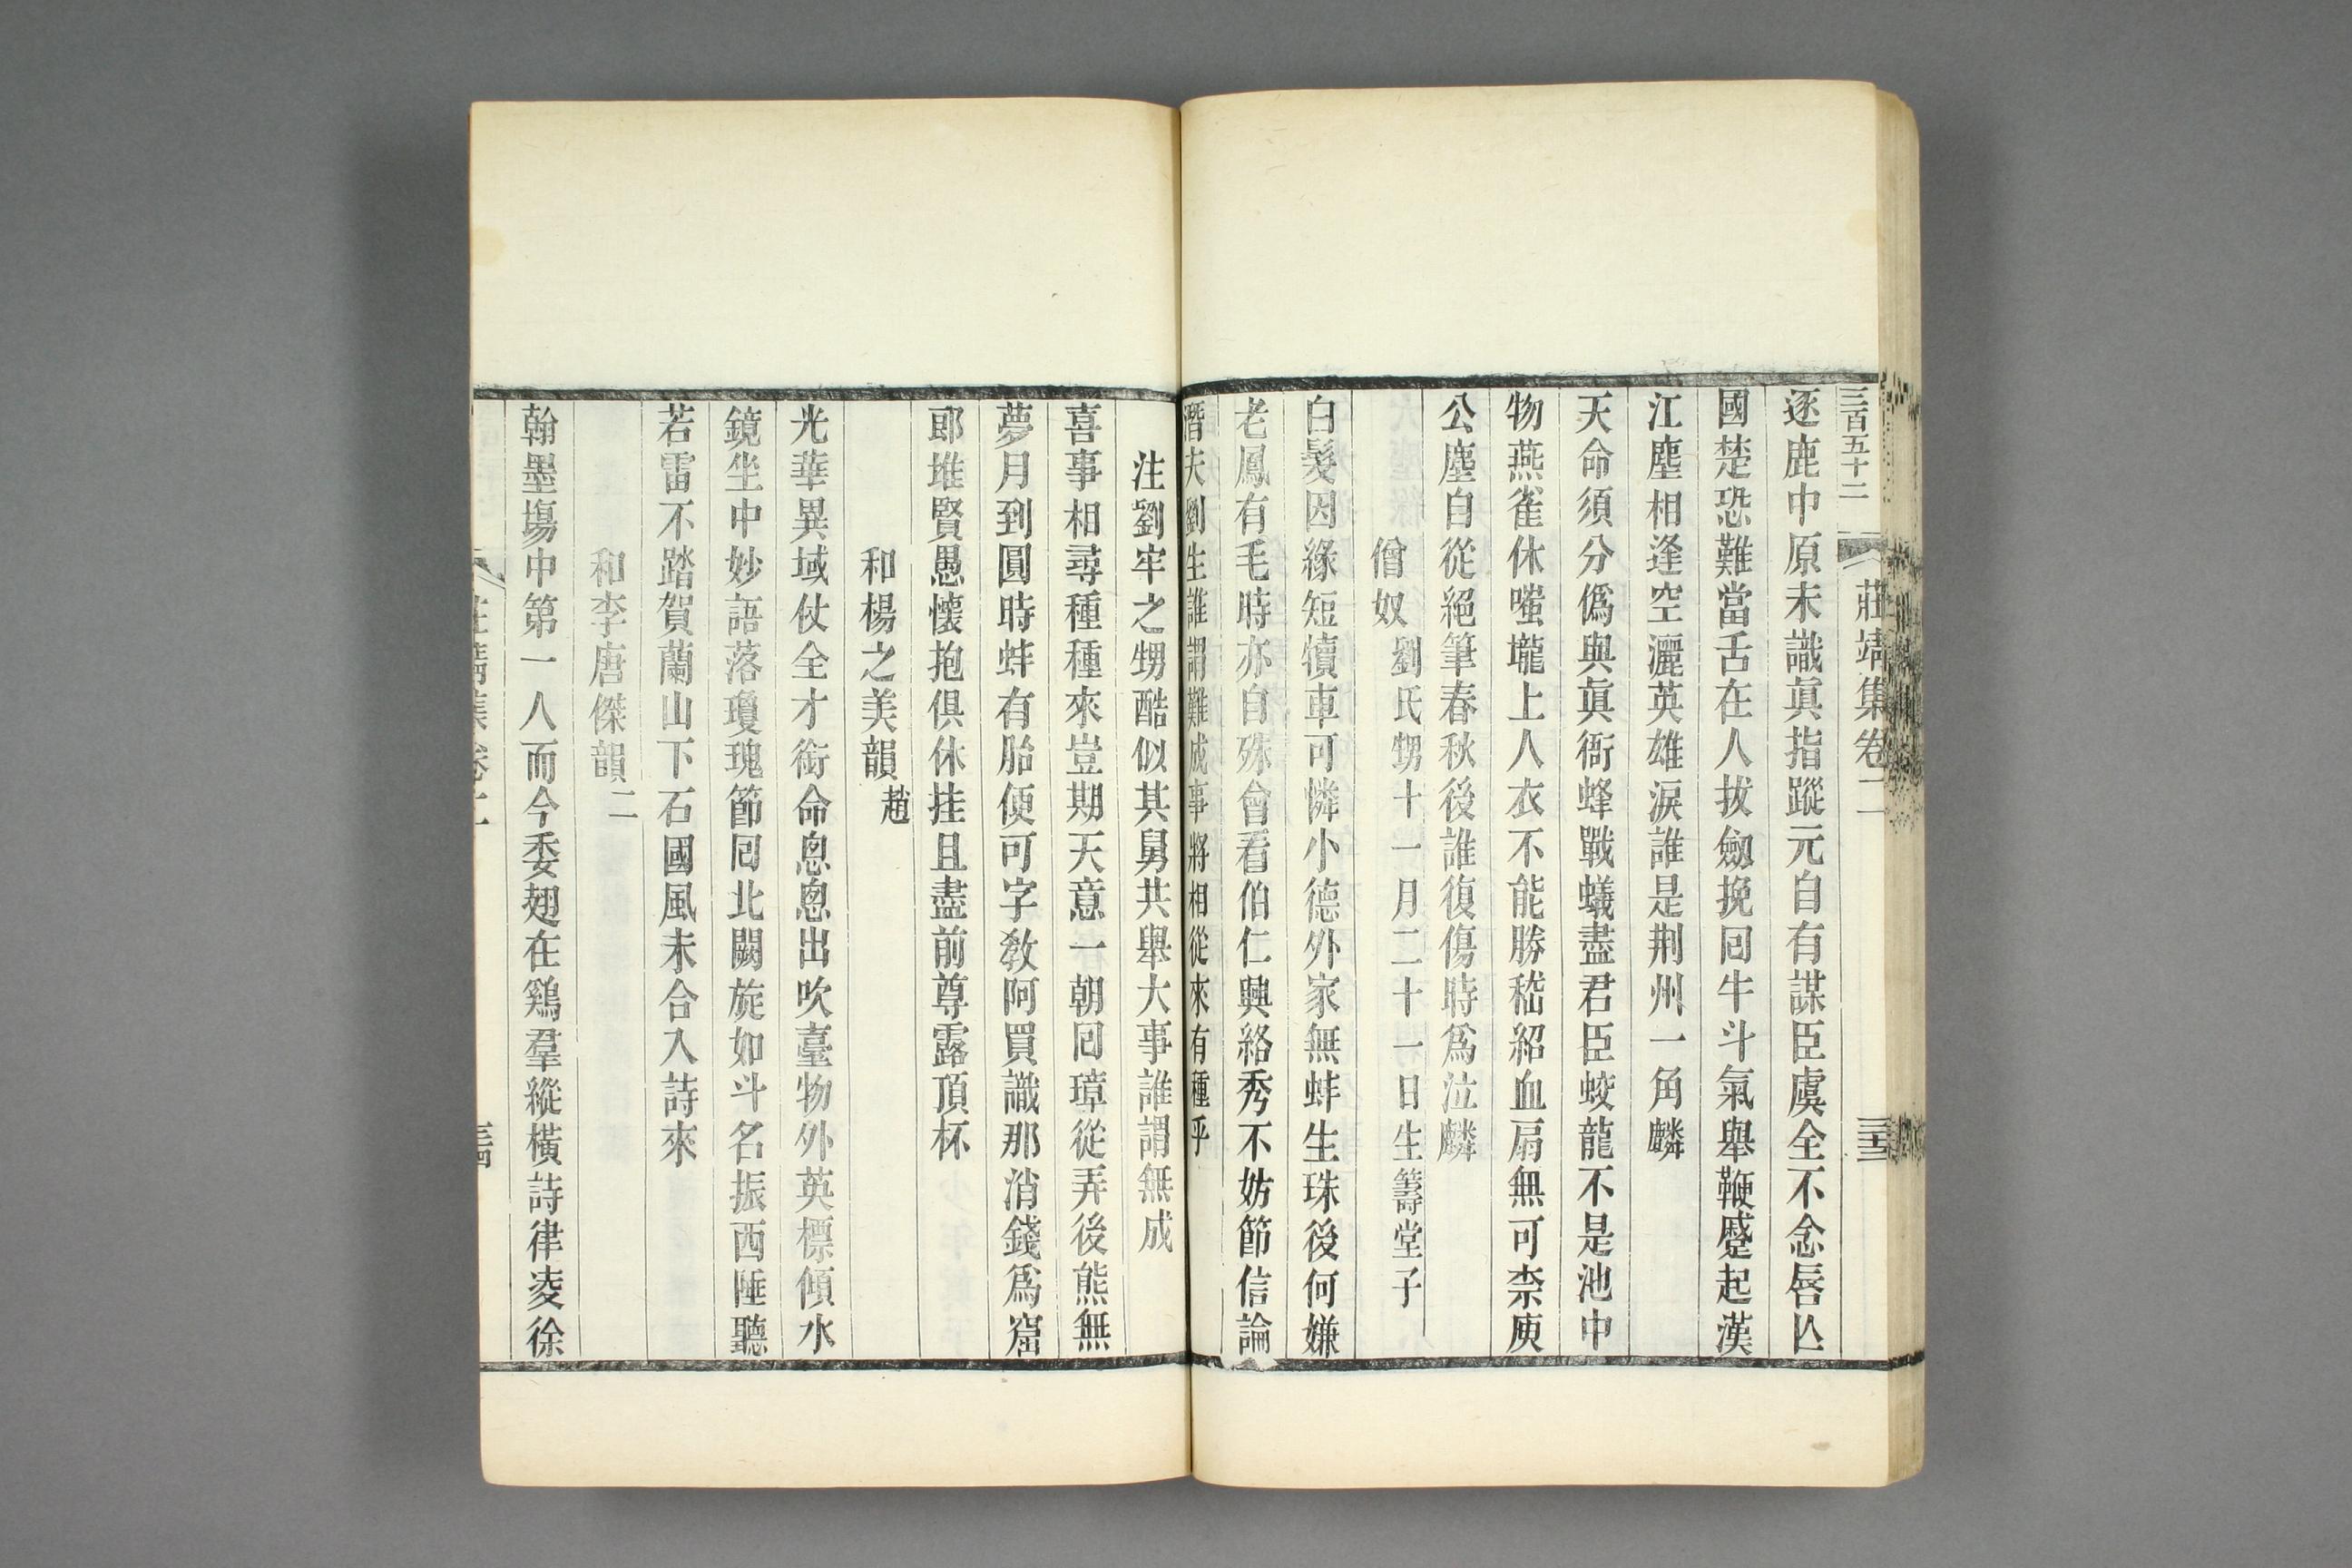 三百五十二 莊靖集卷二 三十三
逐鹿中原未識眞指蹤元自有謀臣虞全不念唇亾
國楚恐難當舌在人拔劒挽囘牛斗氣舉鞭蹙起漢
江塵相逢空灑英雄淚誰是荆州一角麟
天命須分僞與眞衙蜂戰蟻盡君臣蛟龍不是池中
物燕雀休嗤壠上人衣不能勝嵇紹血扇無可柰庾
公塵自從絕筆春秋後誰復傷時爲泣麟
僧奴 劉氏甥十一月二十一日生籌堂子
白髮因緣短犢車可憐小德外家無蚌生珠後何嫌
老鳳有毛時亦自殊會看伯仁興絡秀不妨節信論
潛夫劉生誰謂難成事將相從來有種乎
注劉牢之甥酷似其舅共舉大事誰謂無成
喜事相尋種種來豈期天意一朝囘璋從弄後熊無
夢月到圓時蚌有胎便可字敎阿買識那消錢爲窟
郎堆賢愚懷抱俱休挂且盡前尊露頂杯
和楊之美韻 趙
光華異域仗全才銜命悤悤出吹臺物外英標傾水
鏡坐中妙語落瓊瑰節囘北闕旋如斗名振西陲聽
若雷不踏賀蘭山下石國風未合入詩來
和李唐傑韻 二
翰墨塲中第一人而今委翅在鷄羣縱橫詩律凌徐
莊靖集卷二 三十四